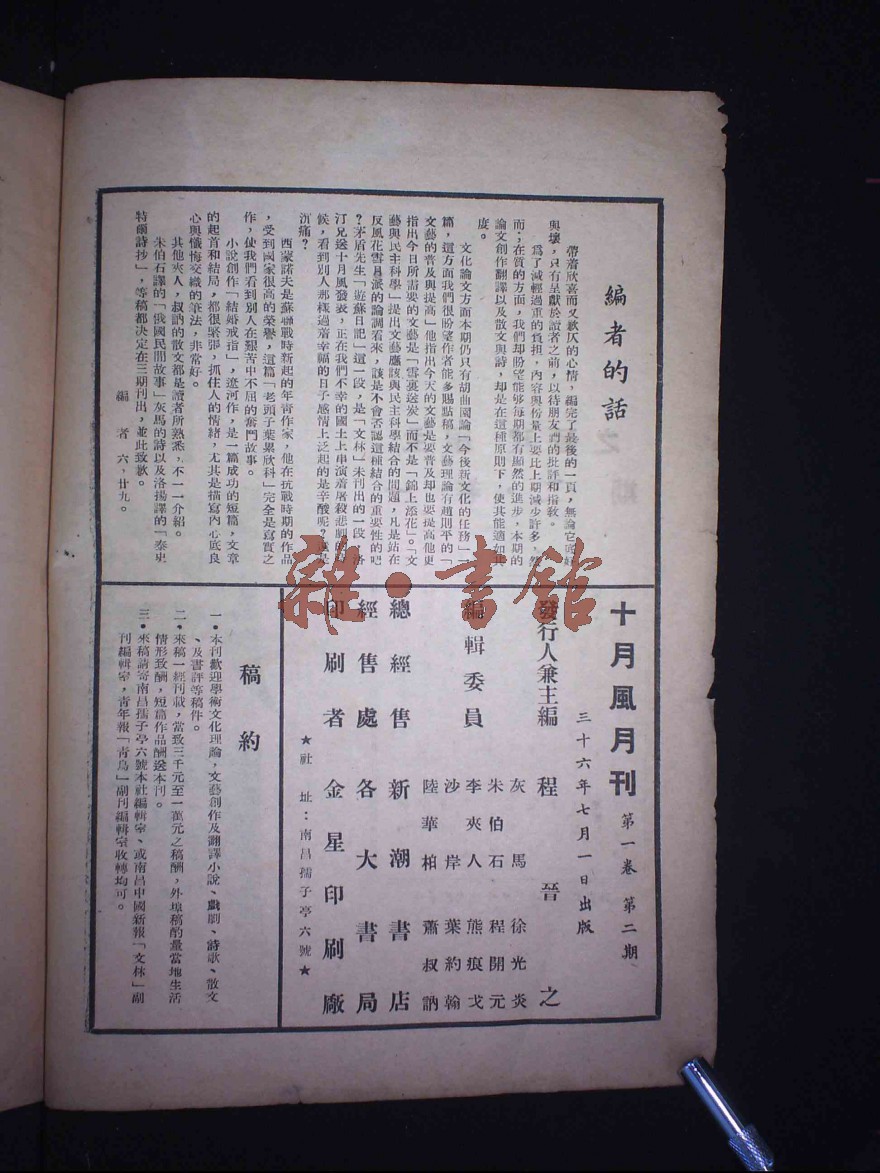 編者的話
帶著欣喜而又歉仄的心情，編完了最後的一頁，無論它底好
與壞，只有呈獻於讀者之前，以待朋友們的批評和指教。
為了減輕過重的負担，內容與份量上要比上期減少許多，然
而；在質的方面，我們却盼望能够每期都有顯然的進步，本期的
論文創作翻譯以及散文與詩，却是在這種原則下，使其能適如其
度。
文化論文方面本期仍只有胡曲園論「今後新文化的任務」一
篇，這方面我們很盼望作者能多賜點稿，文藝理論有趙則平的「
文藝的普及與提高」他指出今天的文藝是要普及却也要提高他更
指出今日所需要的文藝是「雪裏送炭」而不是「錦上添花」。「文
藝與民主科學」提出文藝應該與民主科學結合的問題，凡是站在
反風花雪月派的論調看來，該是不會否認這種結合的重要性的吧
？茅盾先生「遊蘇日記」這一段，是「文林」未刊出的一段，洛
汀兄送十月風發表，正在我們不幸的國土上串演着屠殺悲劇的時
候，看到別人那樣過着幸福的日子感情上泛起的是辛酸呢？還是
沉痛？
西蒙諾夫是蘇聯戰時新起的年青作家，他在抗戰時期的作品
，受到國家很高的榮譽，這篇「老頭子葉累欣科」完全是寫實之
作，使我們看到別人在艱苦中不屈的奮鬥故事。
小說創作「結婚戒指」，遼河作，是一篇成功的短篇，文章
的起首和結局，都很緊張，抓住人的情緒，尤其是描寫內心底良
心與懺悔交織的筆法，非常好。
其他夾人，叔訥的散文都是讀者所熟悉，不一一介紹。
朱伯石譯的「俄國民間故事」灰馬的詩以及洛揚譯的「泰史
特爾詩抄」，等稿都決定在三期刊出，並此致歉。
編者 六，廿九。
十月風月刊 第一卷 第二期
三十六年七月一日出版
發行人兼主編 程晉之
編輯委員
灰馬 徐光炎
朱伯石 程開元
李夾人 熊痕戈
沙岸 葉約翰
陸華柏 蕭叔訥
總經售 新潮書店
經售處 各大書局
印刷者 金星印刷廠
★社址：南昌孺子亭六號★
稿約
一•本刊歡迎學術文化理論，文藝創作及翻譯小說、戲劇、詩歌、散文
、及書評等稿件。
二•來稿一經刊載，當致三千元至一萬元之稿酬，外埠稿酌量當地生活
情形致酬，短篇作品酬送本刊。
三•來稿請寄南昌孺子亭六號本社編輯室、或南昌中國新報「文林」副
刊編輯室，青年報「青鳥」副刊編輯室收轉均可。
雜•書館